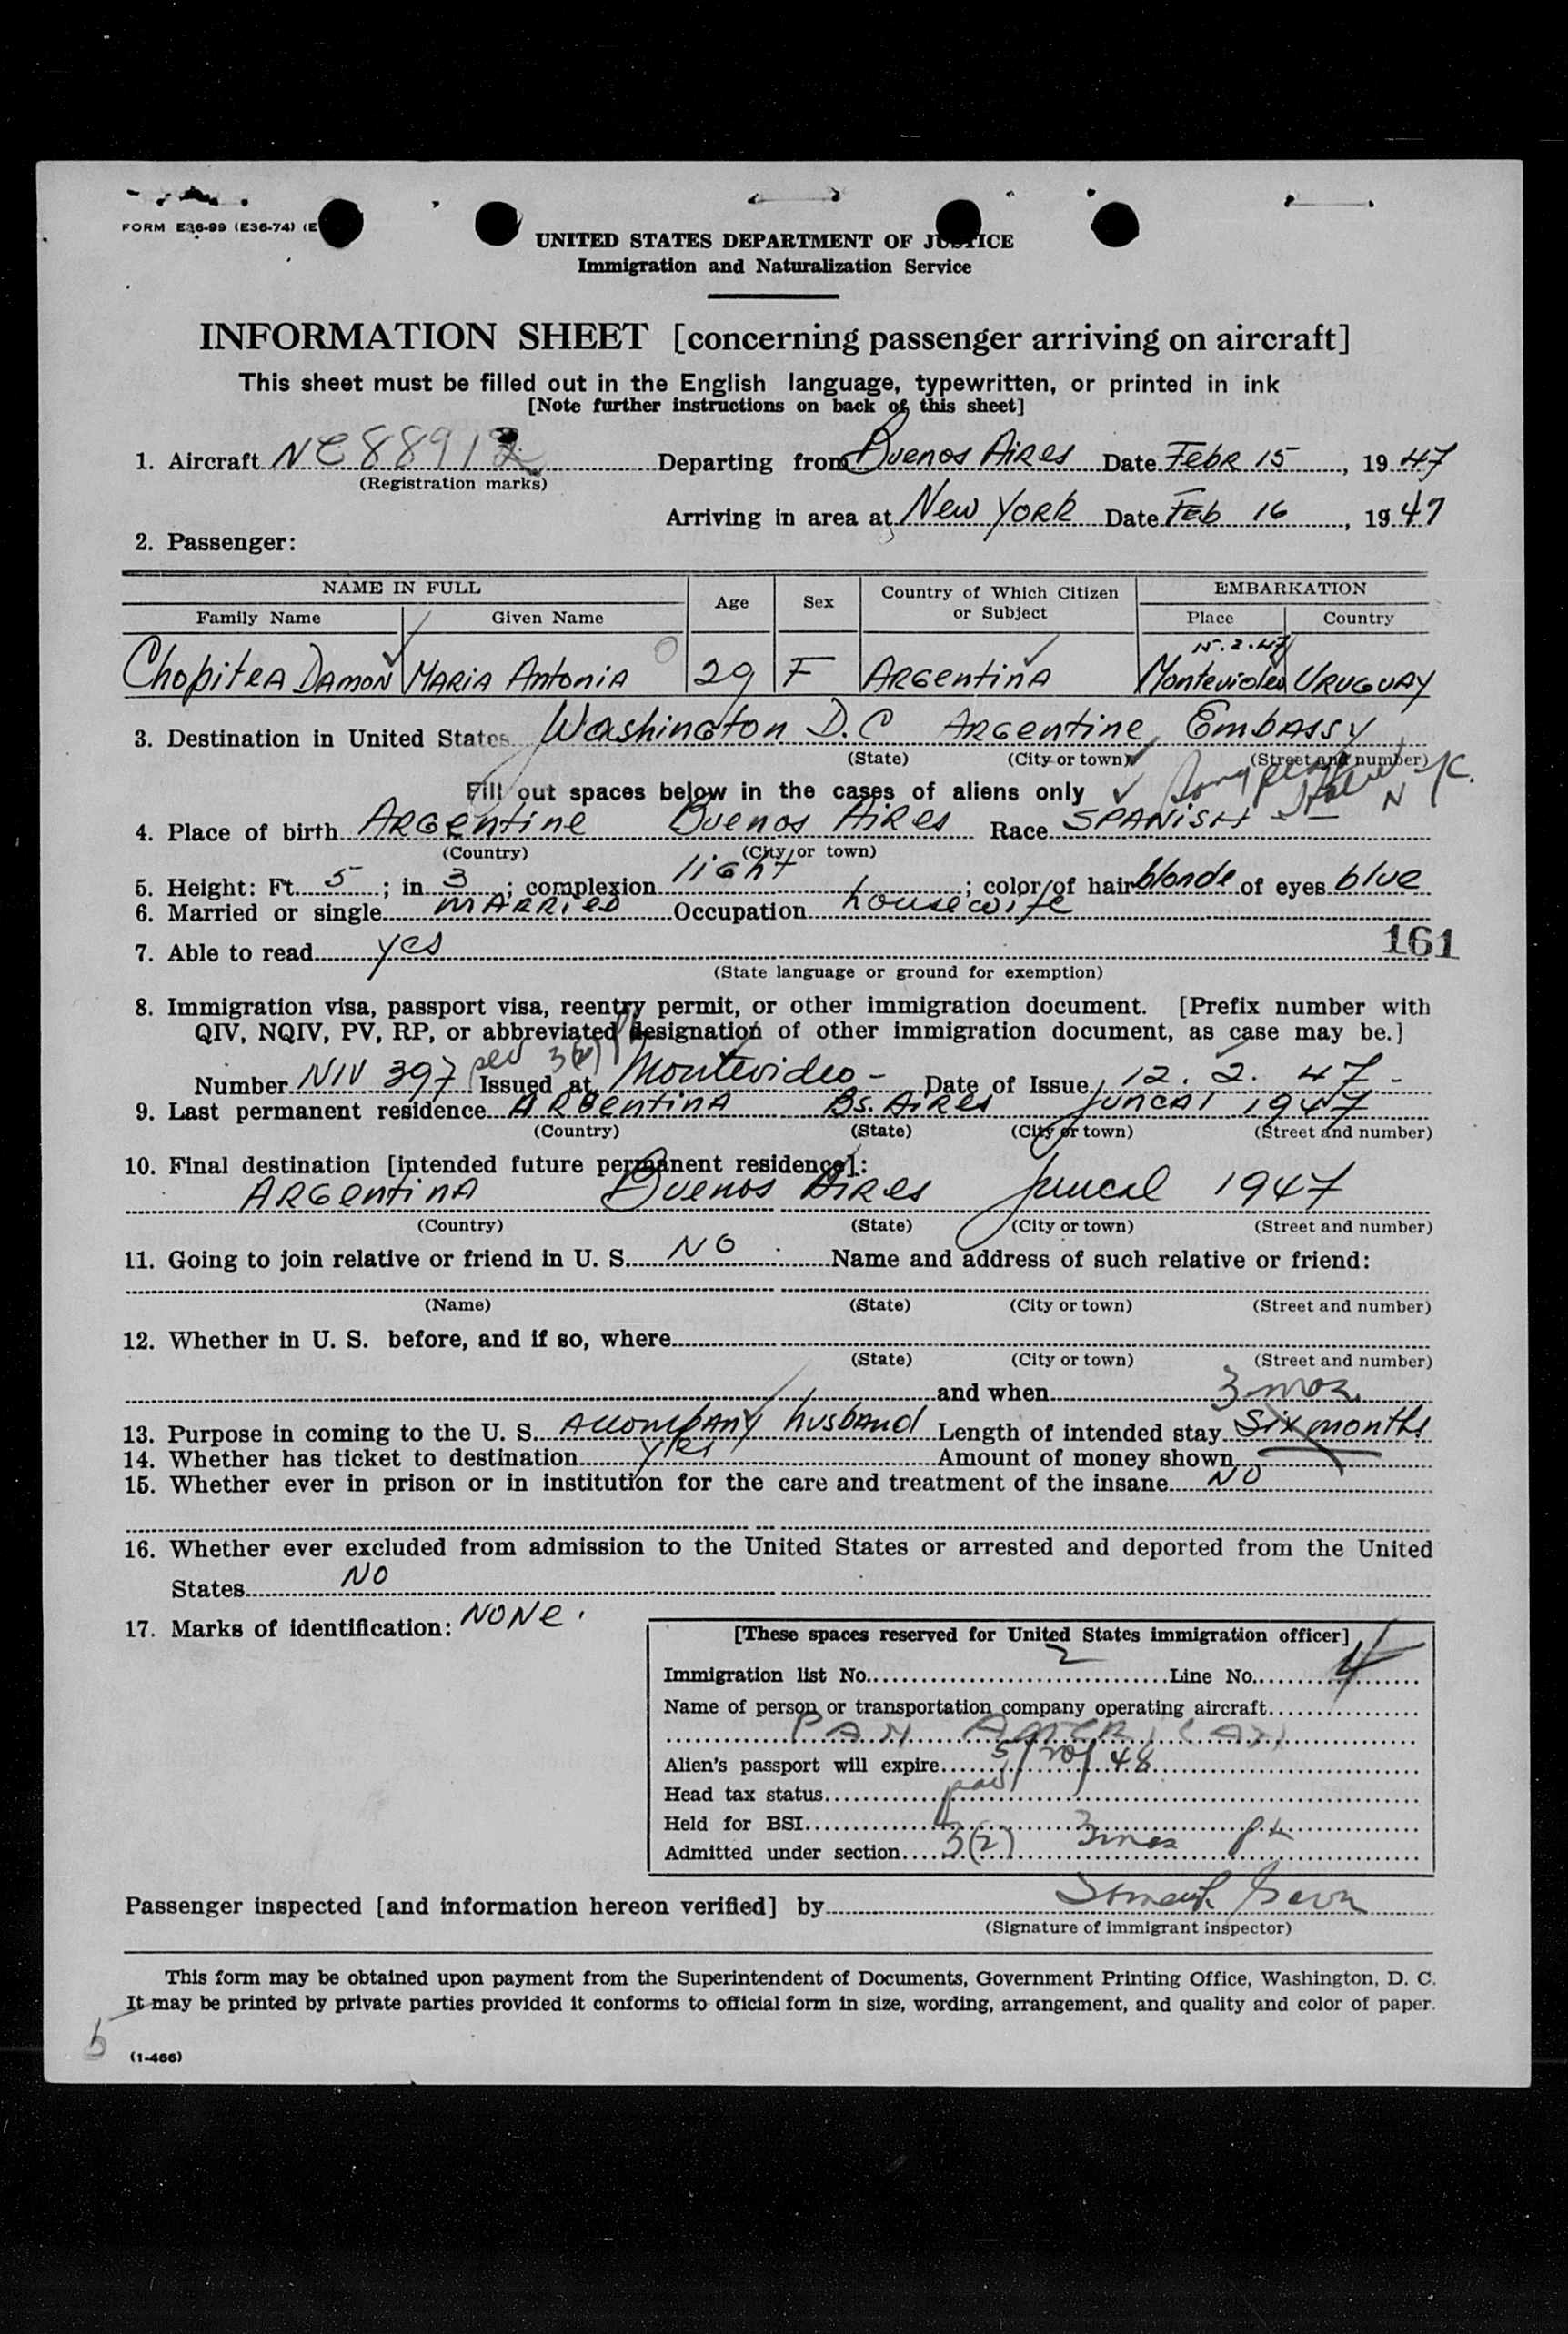 FORM E36-99 (E36-74) (E
UNITED STATES DEPARTMENT OF JUSTICE
Immigration and Naturalization Service
INFORMATION SHEET [concerning passenger arriving on aircraft]
This sheet must be filled out in the English language, typewritten, or printed in ink
[Note further instructions on back of this sheet]
1. Aircraft NC 88912 Departing from Buenos Aires Date Febr 15, 1947
(Registration marks)
Arriving in area at New York Date Feb 16, 1947
2. Passenger:
NAME IN FULL Age Sex Country of Which Citizen or Subject EMBARKATION
Family Name Given Name Place Country
15.2.47
Chopitea Damon Maria Antonia 29 F Argentina Montevideo Uruguay
3. Destination in United States Washington D.C Argentine Embassy
(State) (City or town) (Street and number)
Fill out spaces below in the cases of aliens only
4. Place of birth Argentine Buenos Aires Race Spanish
(Country) (City or town)
5. Height: Ft. 5; in. 3; complexion light; color of hair blonde of eyes blue
6. Married or single married Occupation housewife
7. Able to read yes 161
(State language or ground for exemption)
8. Immigration visa, passport visa, reentry permit, or other immigration document. [Prefix number with
QIV, NQIV, PV, RP, or abbreviated designation of other immigration document, as case may be.]
3(2)
Number NIV 397 Issued at Montevideo - Date of Issue 12. 2. 47 -
9. Last permanent residence Argentina Bs. Aires Juncal 1947
(Country) (State) (City or town) (Street and number)
10. Final destination [intended future permanent residence]:
Argentina Buenos Aires Juncal 1947
(Country) (State) (City or town) (Street and number)
11. Going to join relative or friend in U. S. NO Name and address of such relative or friend:
(Name) (State) (City or town) (Street and number)
12. Whether in U. S. before, and if so, where
(State) (City or town) (Street and number)
and when
3 mos.
13. Purpose in coming to the U. S. Accompany husband Length of intended stay Six months
14. Whether has ticket to destination yes Amount of money shown
15. Whether ever in prison or in institution for the care and treatment of the insane NO
16. Whether ever excluded from admission to the United States or arrested and deported from the United
States NO
17. Marks of identification: NONE.
[These spaces reserved for United States immigration officer]
Immigration list No. 2 Line No. 4
Name of person or transportation company operating aircraft
PAN AMER
Alien's passport will expire 5/20/48
Head tax status
Held for BSI
Admitted under section 3(2) 3 mos
Passenger inspected [and information hereon verified] by
(Signature of immigrant inspector)
This form may be obtained upon payment from the Superintendent of Documents, Government Printing Office, Washington, D. C.
It may be printed by private parties provided it conforms to official form in size, wording, arrangement, and quality and color of paper.
5
(1-466)